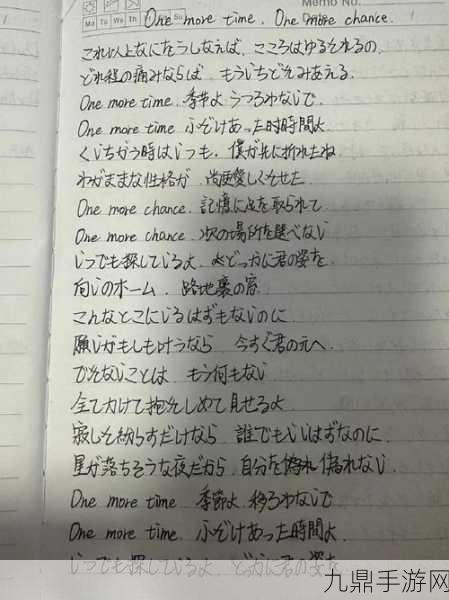 Memo No.
Mo Tu We Th Fr Sa Su
One more time, One more chance.
これ以上なにをうしなえば、こころはゆるされるの、
どれ程の痛みならば もういちどそみあえる.
One more time. 季节よ うつろわないで.
One more time ふざけあった时時間よ.
くいちがう時はいつも、僕が先に折れたね.
わがままな性格が 尚更愛しくさせた.
One more chance. 記憶に足を取られて.
One more chance. 次の場所を選べない
いつでも探しているよ どっかに君の姿を.
向いのホーム . 路地裏の窓.
こんなとこにいるはずもないのに
願いがもしも叶うなら 今すぐ君の元へ.
できないことは もう何もない
全てかけて抱きしめて見せるよ
寂しさ紛らすだけなら 誰でもいいはずなのに.
星が落ちそうな夜だから、自分を 偽れない.
One more time. 季節よ. 移ろわないで
One more time. ふざけあった時間よ.
いつでも探しているよ どっかに君の姿を
九鼎手游网